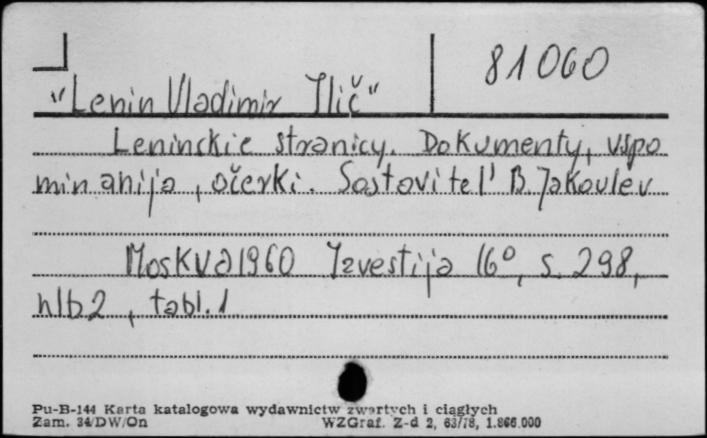 81060
"Lenin Vladimir Ilič"
Leninskie stranicy. Dokumenty, vspo
minanija, očerki. Sostovitel' B. Jakovlev
Moskva 1960 Izvestija 16°, s. 298,
nlb 2, tabl. 1
Pu-B-144 Karta katalogowa wydawnictw zwartych i ciągłych
Zam. 34/DW/On WZGraf. Z-d 2, 63/78, 1.866.000